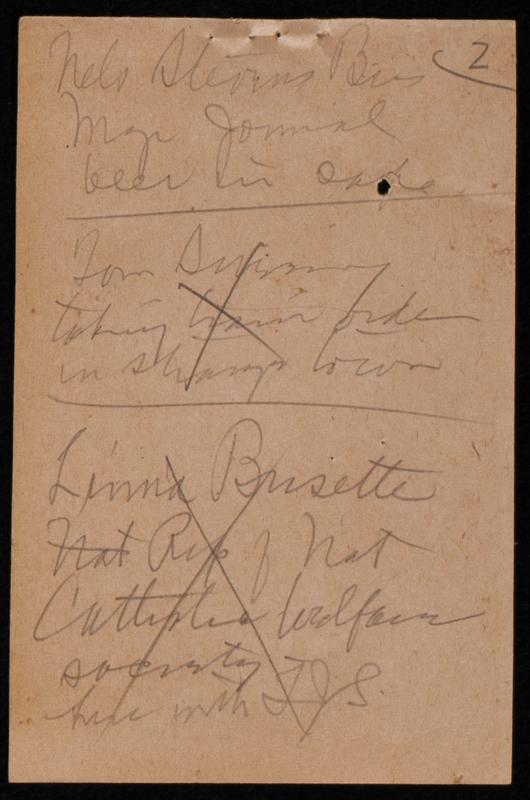 2
Nels Stevens Bus
Mgr Journal
beer in safe
Tom
taking train order
in strange town
Linna Brisette
Nat Rep of Nat
Catholic Welfare
society
here with